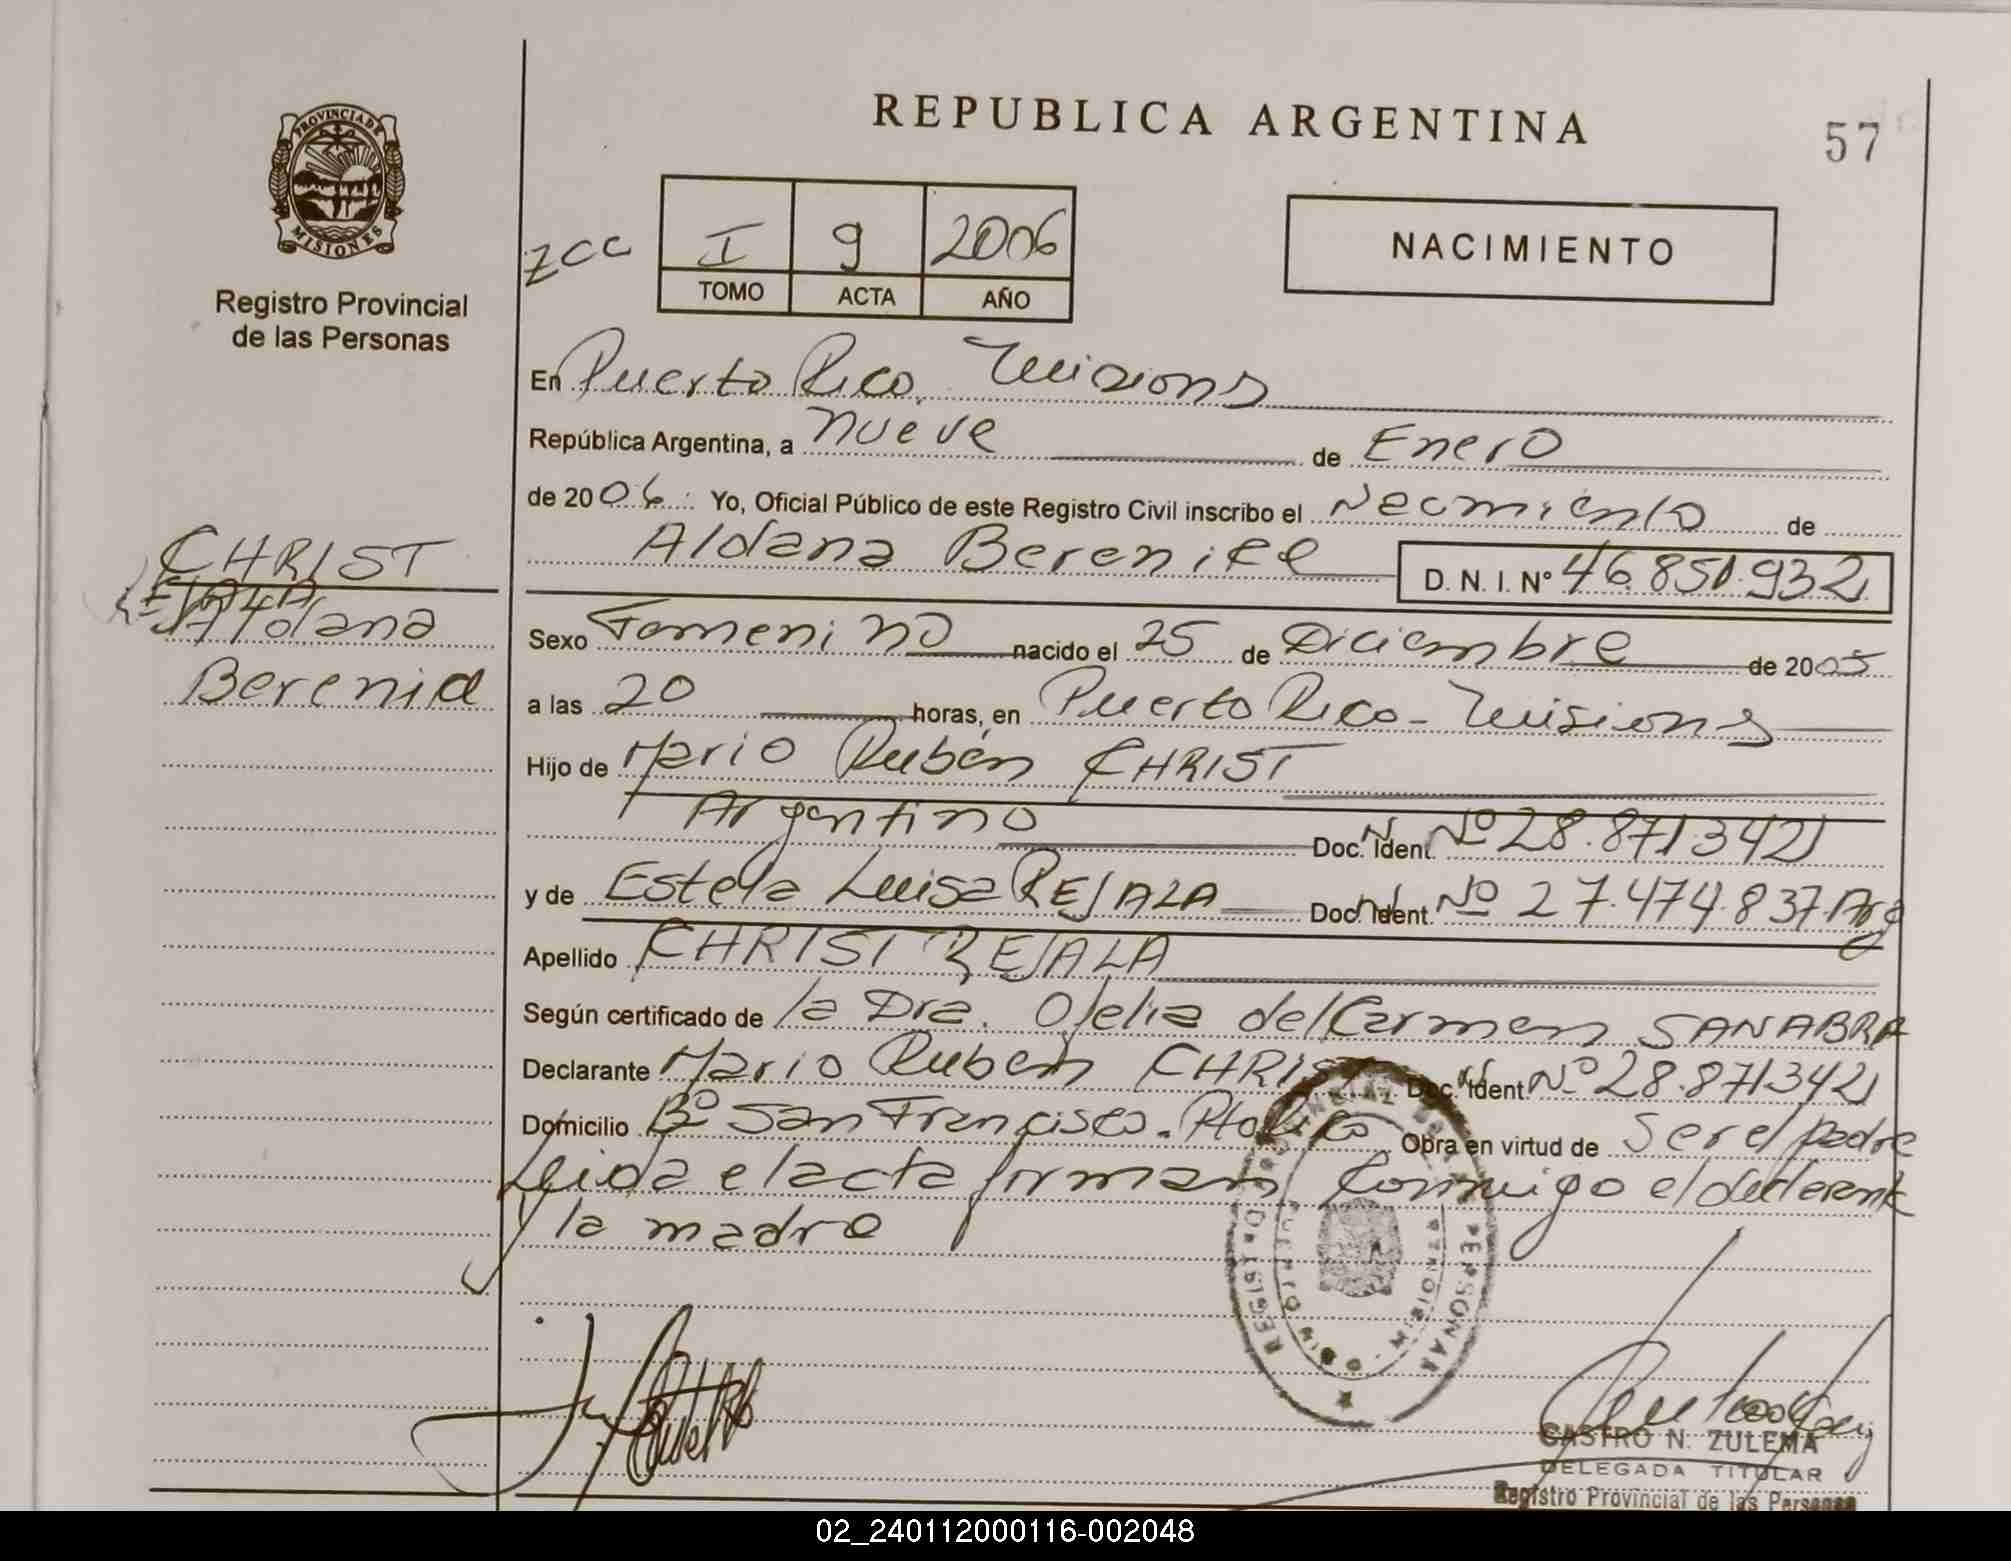 REPUBLICA ARGENTINA
57
PROVINCIA DE
MISIONES
Registro Provincial
de las Personas
ZCC
I 9 2006
TOMO ACTA AÑO
NACIMIENTO
En Puerto Rico Misiones
República Argentina, a nueve de Enero
de 2006 Yo, Oficial Público de este Registro Civil inscribo el Nacimiento de
Aldana Berenice D. N. I. Nº 46.851.932
CHRIST
REJALA
Aldana
Berenice
Sexo Femenino nacido el 25 de Diciembre de 2005
a las 20 horas, en Puerto Rico - Misiones
Hijo de Mario Rubén CHRIST
Argentino Doc. N. Ident. Nº 28.871.342
y de Estela Luisa REJALA Doc. Ident. Nº 27.474.837. Arg
Apellido CHRIST REJALA
Según certificado de la Dra. Ofelia del Carmen SANABRIA
Declarante Mario Ruben CHRIST Doc. Ident Nº 28.871.342
Domicilio Bº San Francisco. Pto Rico Obra en virtud de Ser el padre
Leida el acta firman conmigo el declarante
y la madre
CASTRO N. ZULEMA
DELEGADA TITULAR
Registro Provincial de las Personas
02_240112000116-002048